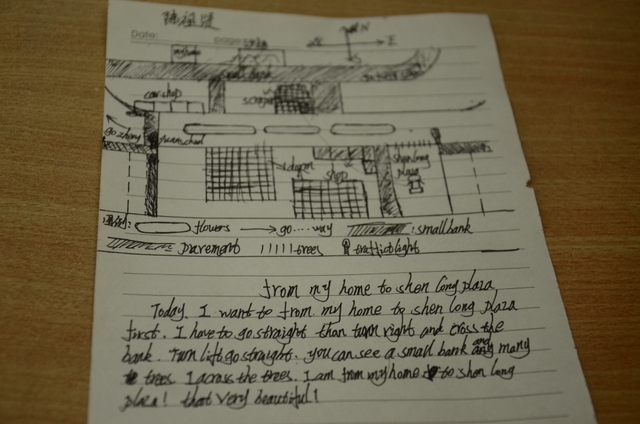 Date:
page:
E
S
car shop
shop
shen long
plaza
flowers → go....way : small bank
pavement trees traffict light
from my home to shen long plaza
Today. I want to from my home to shen long plaza
first. I have to go straight than turn right and cross the
bank. Turn lift go straight. you can see a small bank and many
trees. I across the trees. I am from my home to shen long
plaza! that very beautiful!